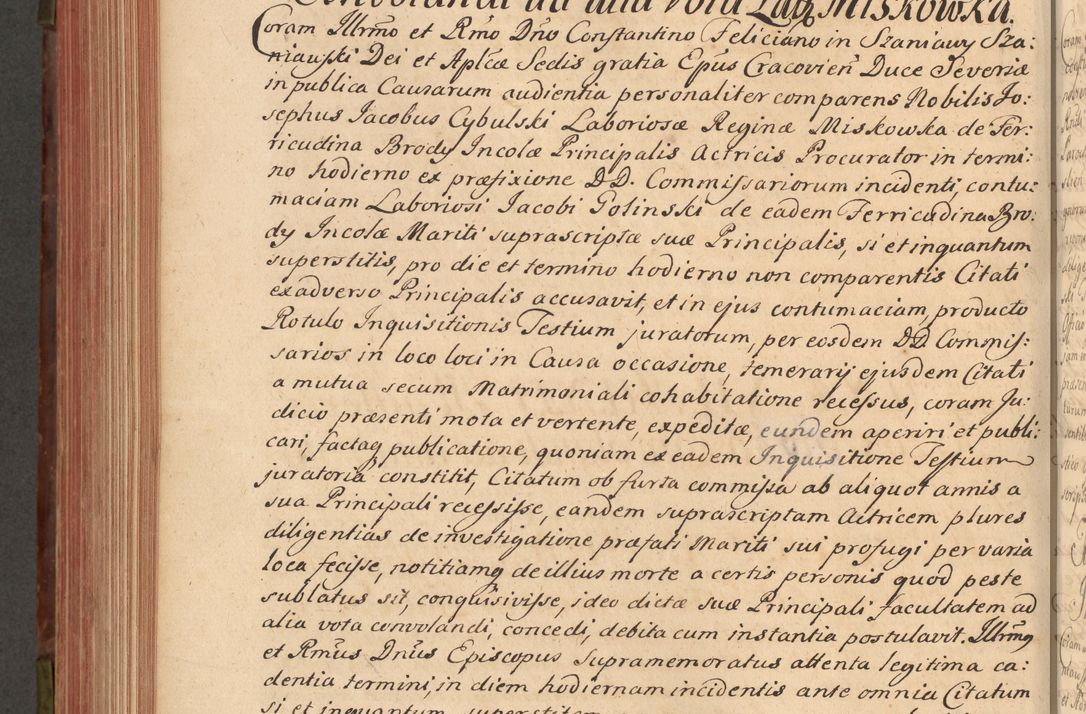 Convolandi ad alia vota Lab: Miskowka.
Coram Illrmo et Rmo Dno Constantino Feliciano in Szaniawy Sza:
niawski Dei et Aplcæ Sedis gratia Epus Cracovien Duce Severiæ
in publica Causarum audientia personaliter comparens Nobilis Jo:
sephus Jacobus Cybulski Laboriosæ Reginæ Miskowka de Ter:
ricudina Brody Incolæ Principalis Actricis Procurator in termi:
no hodierno ex præfixione DD. Commissariorum incidenti, contu:
maciam Laboriosi Jacobi Golinski de eadem Terricudina Bro:
dy Incolæ Mariti suprascriptæ suæ Principalis, si et inquantum
superstitis, pro die et termino hodierno non comparentis Citati
ex adverso Principalis accusavit, et in ejus contumaciam, producto
Rotulo Inquisitionis Testium juratorum, per eosdem DD. Commis:
sarios in loco loci in Causa occasione, temerarij ejusdem Citati
a mutua secum Matrimoniali cohabitatione recessus, coram Ju:
dicio præsenti mota et vertente, expeditæ, eundem aperiri et publi:
cari, factaq publicatione, quoniam ex eadem Inquisitione Testium
juratoria constitit, Citatum ob furta commissa ab aliquot annis a
sua Principali recessisse, eandem suprascriptam Actricem plures
diligentias de investigatione præfati Mariti sui profugi per varia
loca fecisse, notitiamq de illius morte a certis personis quod peste
sublatus sit, conquisivisse, ideo dictæ suæ Principali facultatem ad
alia vota convolandi, concedi, debita cum instantia postulavit. Illrmq
et Rmus Dnus Episcopus supramemoratus attenta legitima ca:
dentia termini, in diem hodiernam incidentis ante omnia Citatum
si et inquantum superstitem